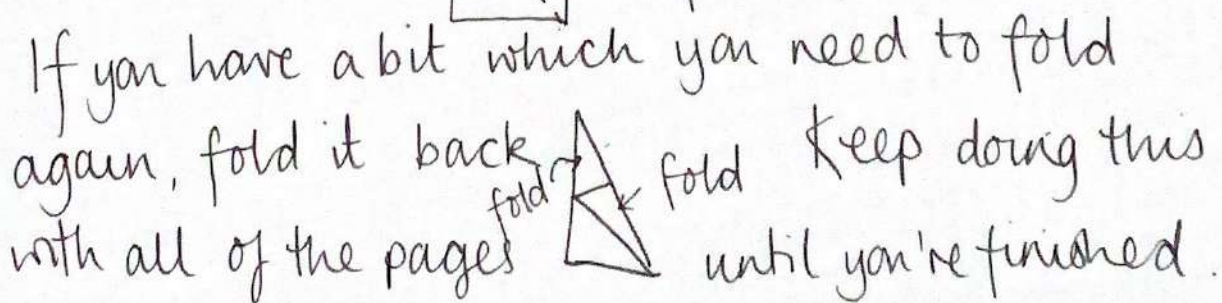 If you have a bit which you need to fold
again, fold it back fold fold Keep doing this
with all of the pages until you're finished.